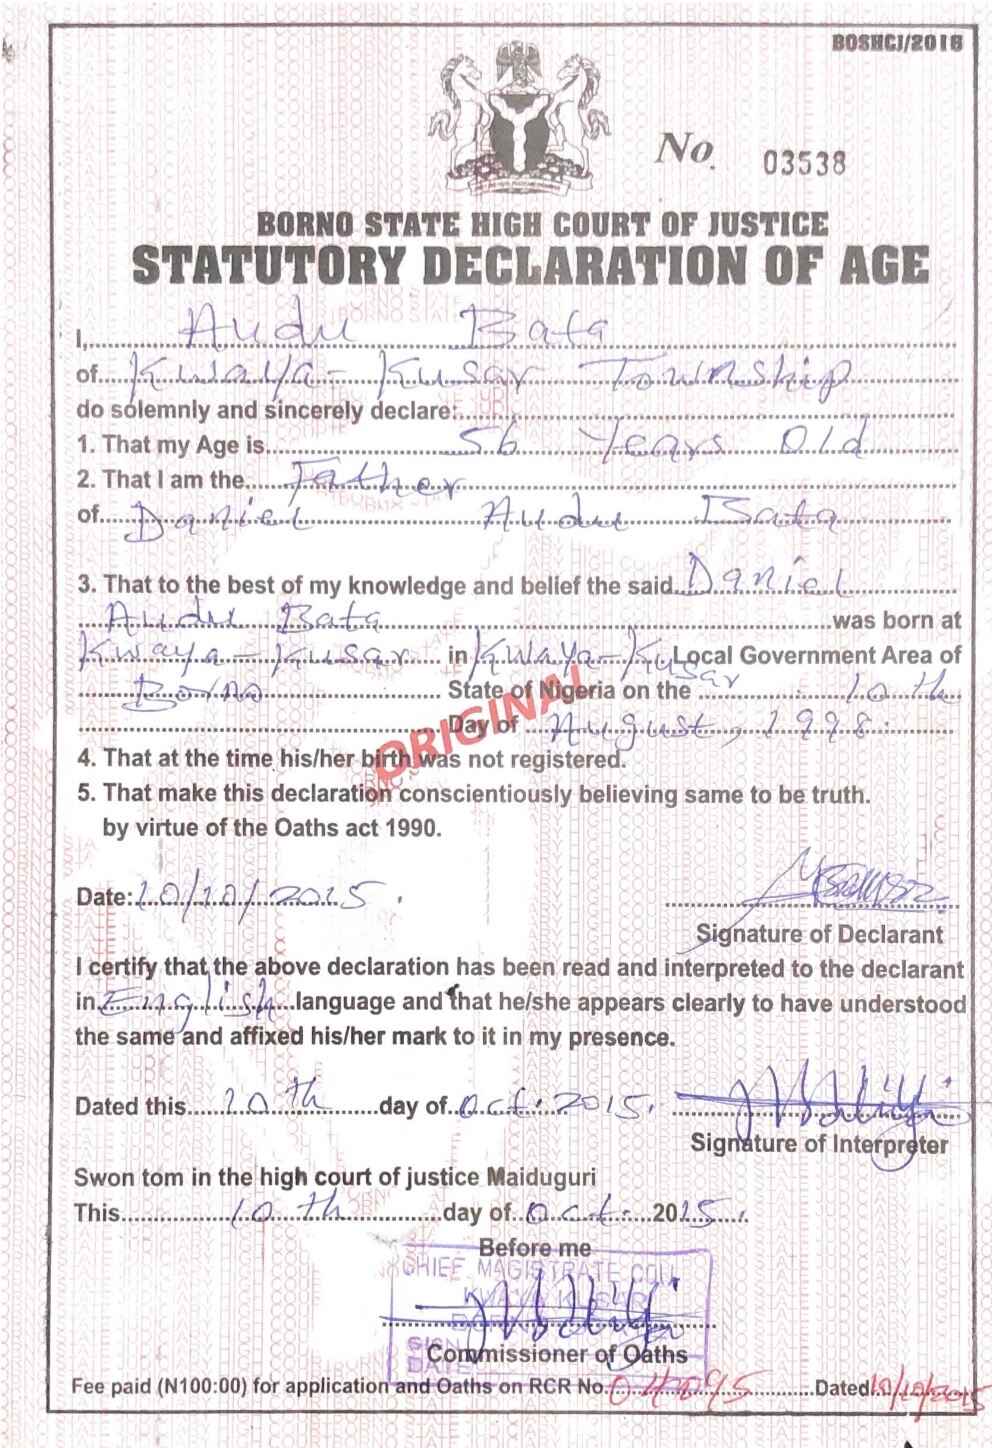 BOSHCJ/2016
No. 03538
BORNO STATE HIGH COURT OF JUSTICE
STATUTORY DECLARATION OF AGE
I, Audu Bata
of Kwaya-Kusar Township
do solemnly and sincerely declare:
1. That my Age is 56 Years Old
2. That I am the Father
of Daniel Audu Bata
3. That to the best of my knowledge and belief the said Daniel
Audu Bata was born at
Kwaya-Kusar in Kwaya-Kusar Local Government Area of
Borno State of Nigeria on the 10th
Day of August, 1998
ORIGINAL
4. That at the time his/her birth was not registered.
5. That make this declaration conscientiously believing same to be truth.
by virtue of the Oaths act 1990.
Date: 10/10/2015.
Signature of Declarant
I certify that the above declaration has been read and interpreted to the declarant
in English language and that he/she appears clearly to have understood
the same and affixed his/her mark to it in my presence.
Dated this 10th day of Oct. 2015.
Signature of Interpreter
Swon tom in the high court of justice Maiduguri
This 10th day of Oct. 2015.
Before me
CHIEF MAGISTRATE
SIGN
DATE
Commissioner of Oaths
Fee paid (N100:00) for application and Oaths on RCR No. Dated 10/10/2015